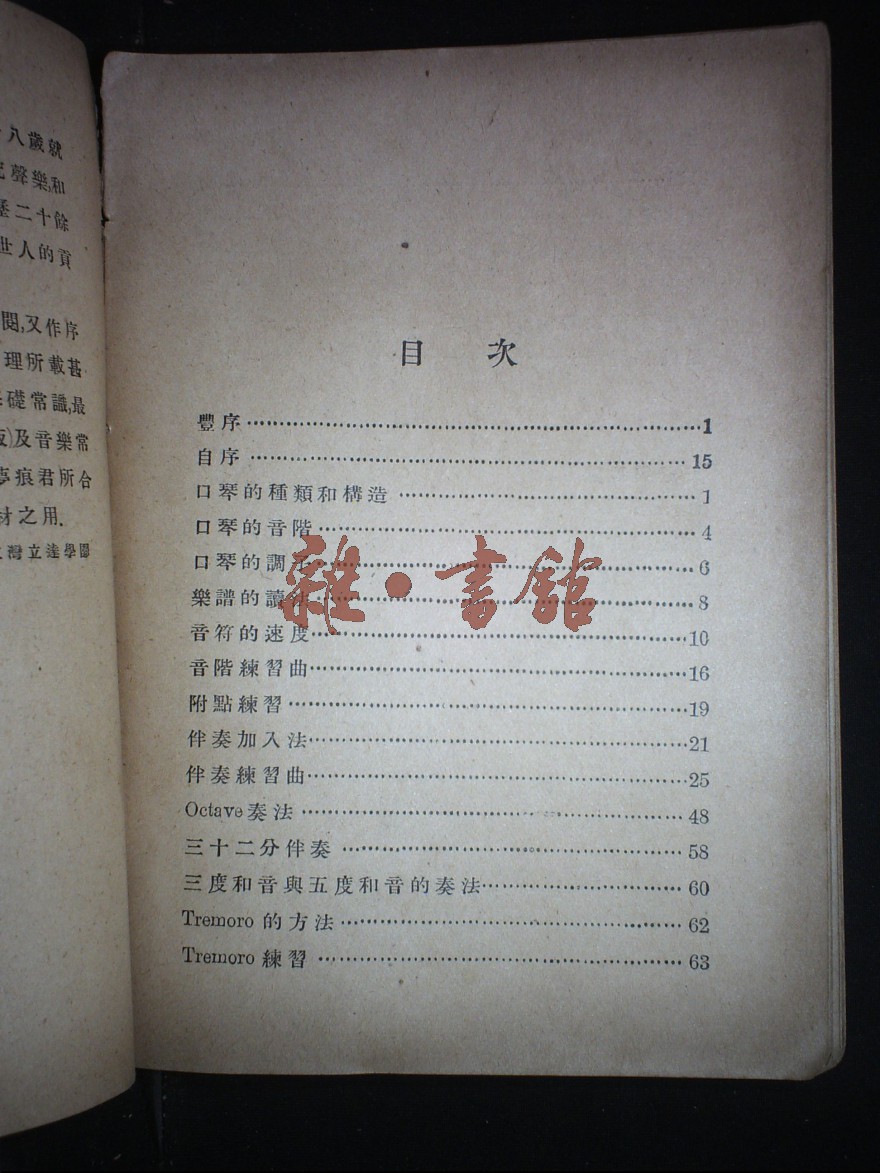 八歲就
聲樂,和
二十餘
世人的貢
閱,又作序
理所載甚
礎常識,最
及音樂常
夢痕君所合
材之用.
灣立達學園
目 次
豐序 1
自序 15
口琴的種類和構造 1
口琴的音階 4
口琴的調子 6
樂譜的讀法 8
音符的速度 10
音階練習曲 16
附點練習 19
伴奏加入法 21
伴奏練習曲 25
Octave奏法 48
三十二分伴奏 58
三度和音與五度和音的奏法 60
Tremoro 的方法 62
Tremoro 練習 63
雜·書館